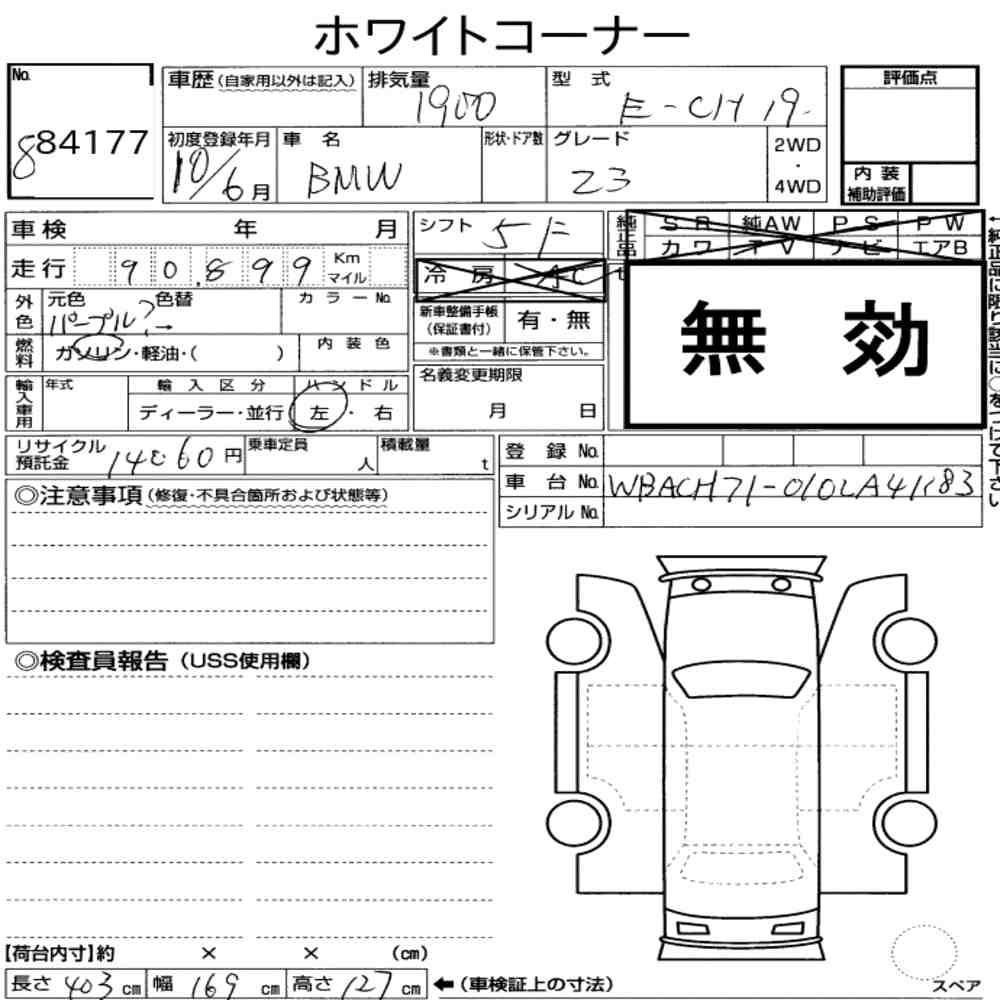 ホワイトコーナー
No.
884177
車歴(自家用以外は記入)
排気量
1900
型 式
E-CH19
評価点
初度登録年月
10/6月
車 名
BMW
形状・ドア数
グレード
Z3
2WD
・
4WD
内 装
補助評価
車検 年 月
走行 90,899 Km マイル
外色 元色 パープル? 色替 → カラーNo.
燃料 ガソリン・軽油・( ) 内装色
輸入車用 年式 輸入区分 ディーラー・並行 ハンドル 左・右
シフト 5F
冷 房 AC
新車整備手帳
(保証書付)
有・無
※書類と一緒に保管下さい。
名義変更期限
月 日
純正品 SR 純AW PS PW
カワ TV ナビ エアB
無 効
←純正品に限り該当に○をつけて下さい
リサイクル
預託金
14060円
乗車定員 人
積載量 t
登 録 No.
車 台 No. WBACH71-010LA41183
シリアル No.
◎注意事項(修復・不具合箇所および状態等)
◎検査員報告(USS使用欄)
【荷台内寸】約 × × (cm)
長さ 403 cm 幅 169 cm 高さ 127 cm ←(車検証上の寸法)
スペア